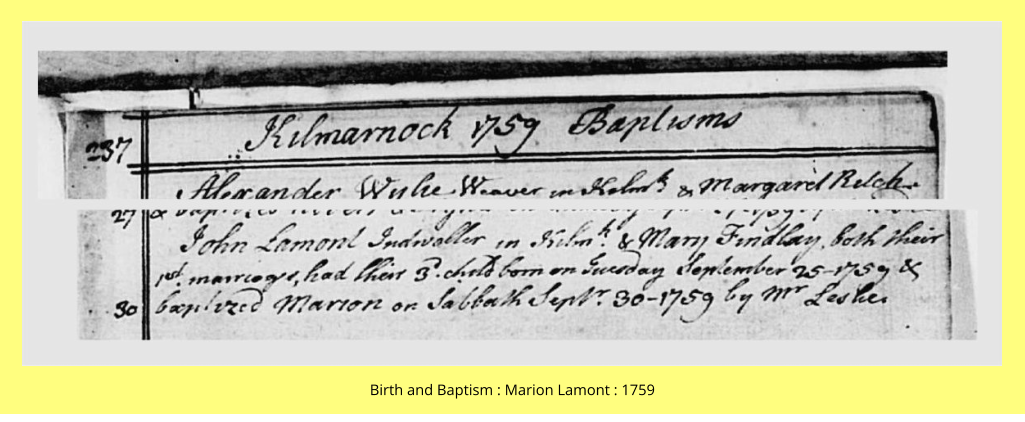 Kilmarnock 1759 Baptisms
237
Alexander Wylie Weaver in Kilmk & Margaret Reich
27 & baptized
John Lamont Indwaller in Kilmk & Mary Findlay, both their
1st marriage, had their 3d child born on Tuesday September 25-1759 &
30 baptized Marion on Sabbath Septr 30-1759 by Mr Leslie
Birth and Baptism : Marion Lamont : 1759